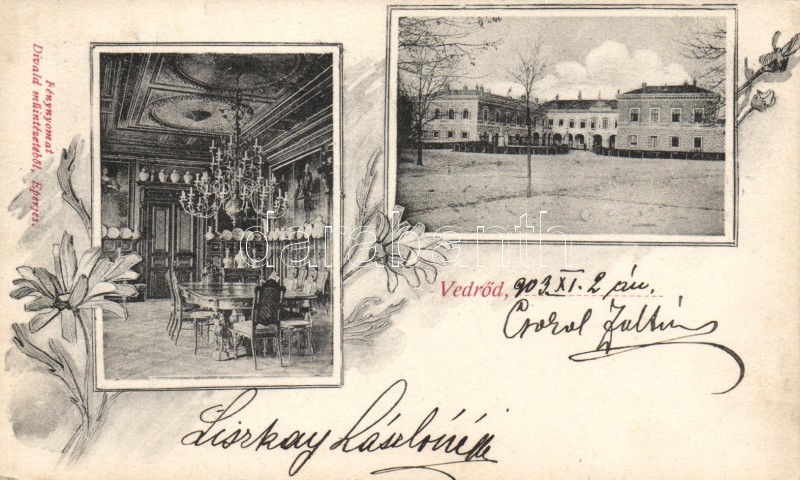 Fénynyomat
Divald műintézetéből, Eperjes.
darabanth
Vedrőd, 903 XI. 2 án.
Csokol Zoltán
Liszkay Lászlóné